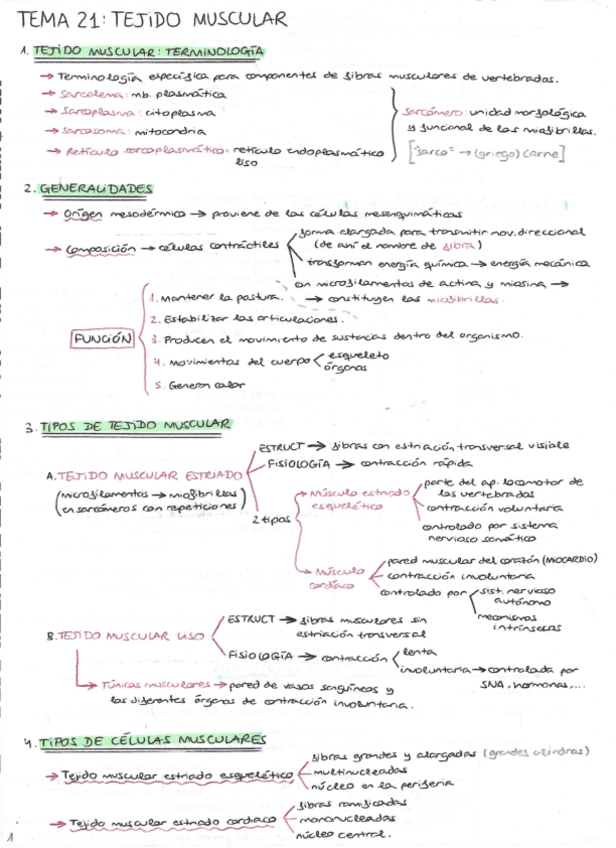 TEMA 21: TEJIDO MUSCULAR
1. TEJIDO MUSCULAR: TERMINOLOGÍA
→ Terminología específica para componentes de fibras musculares de vertebrados.
→ Sarcolema: mb. plasmática
→ Sarcoplasma: citoplasma
→ Sarcosoma: mitocondria
→ Retículo sarcoplasmático: retículo endoplasmático
liso
Sarcómero: unidad morfológica
y funcional de las miofibrillas.
["sarco" → (griego) (carne)]
2. GENERALIDADES
→ Origen mesodérmico → proviene de las células mesenquimáticas
→ Composición → células contráctiles
forma alargada para transmitir mov. direccional
(de ahí el nombre de fibra)
transforman energía química → energía mecánica
con microfilamentos de actina y miosina →
→ constituyen las miofibrillas.
FUNCIÓN
1. Mantener la postura.
2. Estabilizar las articulaciones.
3. Producen el movimiento de sustacias dentro del organismo.
4. Movimientos del cuerpo
esqueleto
órganos
5. Generan calor
3. TIPOS DE TEJIDO MUSCULAR
A. TEJIDO MUSCULAR ESTRIADO
(microfilamentos → miofibrillas)
(en sarcómeros con repeticiones)
ESTRUCT → fibras con estriación transversal visible
FISIOLOGÍA → contracción rápida
2 tipos
→ Músculo estriado
esquelético
parte del ap. locomotor de
los vertebrados
contracción voluntaria
controlado por sistema
nervioso somático
→ Músculo
cardíaco
pared muscular del corazón (MIOCARDIO)
contracción involuntaria
controlado por
sist. nervioso
autónomo
mecanismos
intrínsecos
B. TEJIDO MUSCULAR LISO
ESTRUCT → fibras musculares sin
estriación transversal
FISIOLOGÍA → contracción
lenta
involuntaria → controlada por
SNA, hormonas,...
→ Túnicas musculares → pared de vasos sanguíneos y
los diferentes órganos de contracción involuntaria.
4. TIPOS DE CÉLULAS MUSCULARES
→ Tejido muscular estriado esquelético
fibras grandes y alargadas (grandes cilindros)
multinucleadas
núcleo en la periferia
→ Tejido muscular estriado cardíaco
fibras ramificadas
mononucleadas
núcleo central.
1